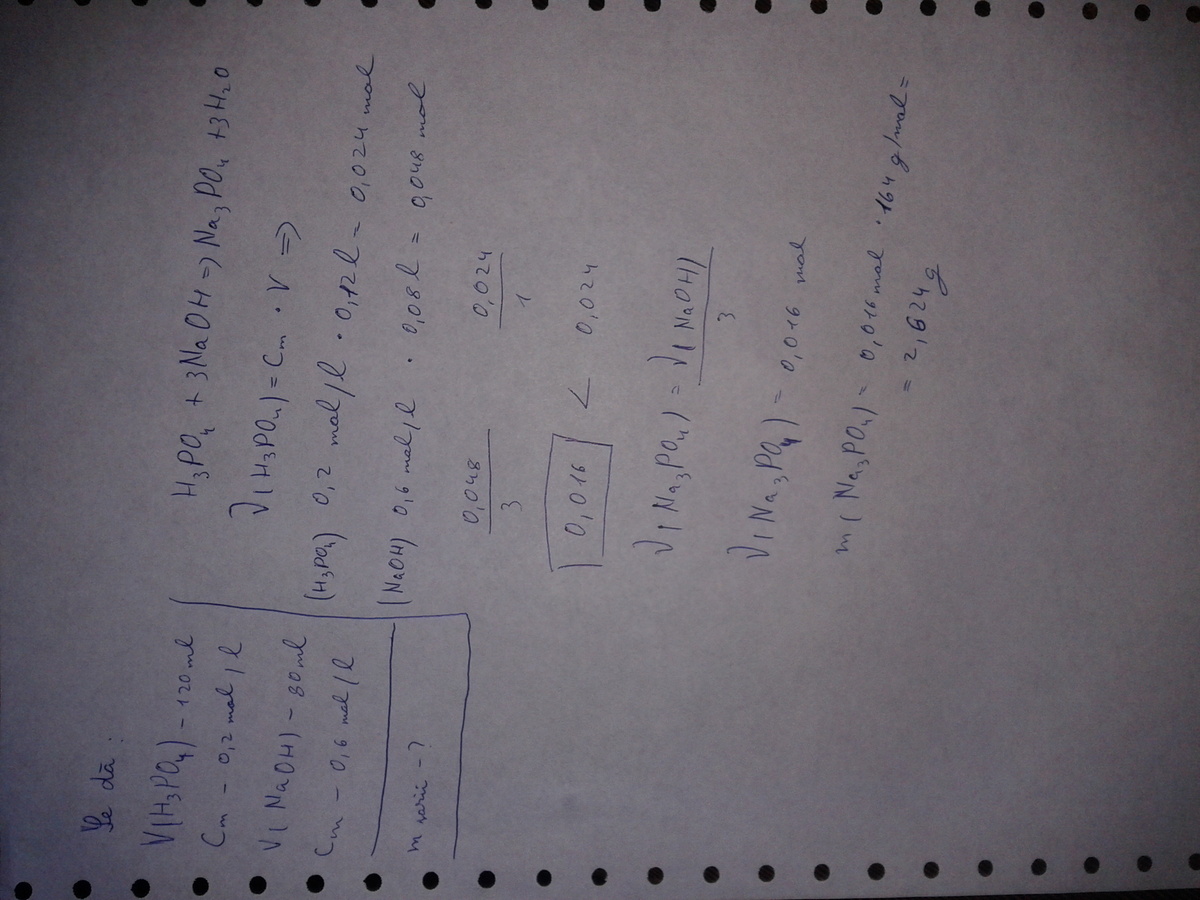 Se dă:
V(H₃PO₄) – 120 ml
Cm – 0,2 mol/l
V(NaOH) – 80 ml
Cm – 0,6 mol/l
m sării – ?
H₃PO₄ + 3NaOH => Na₃PO₄ + 3H₂O
ν(H₃PO₄) = Cm · V =>
(H₃PO₄) 0,2 mol/l · 0,12 l = 0,024 mol
(NaOH) 0,6 mol/l · 0,08 l = 0,048 mol
0,048/3 0,024/1
0,016 < 0,024
ν(Na₃PO₄) = ν(NaOH)/3
ν(Na₃PO₄) = 0,016 mol
m(Na₃PO₄) = 0,016 mol · 164 g/mol =
= 2,624 g